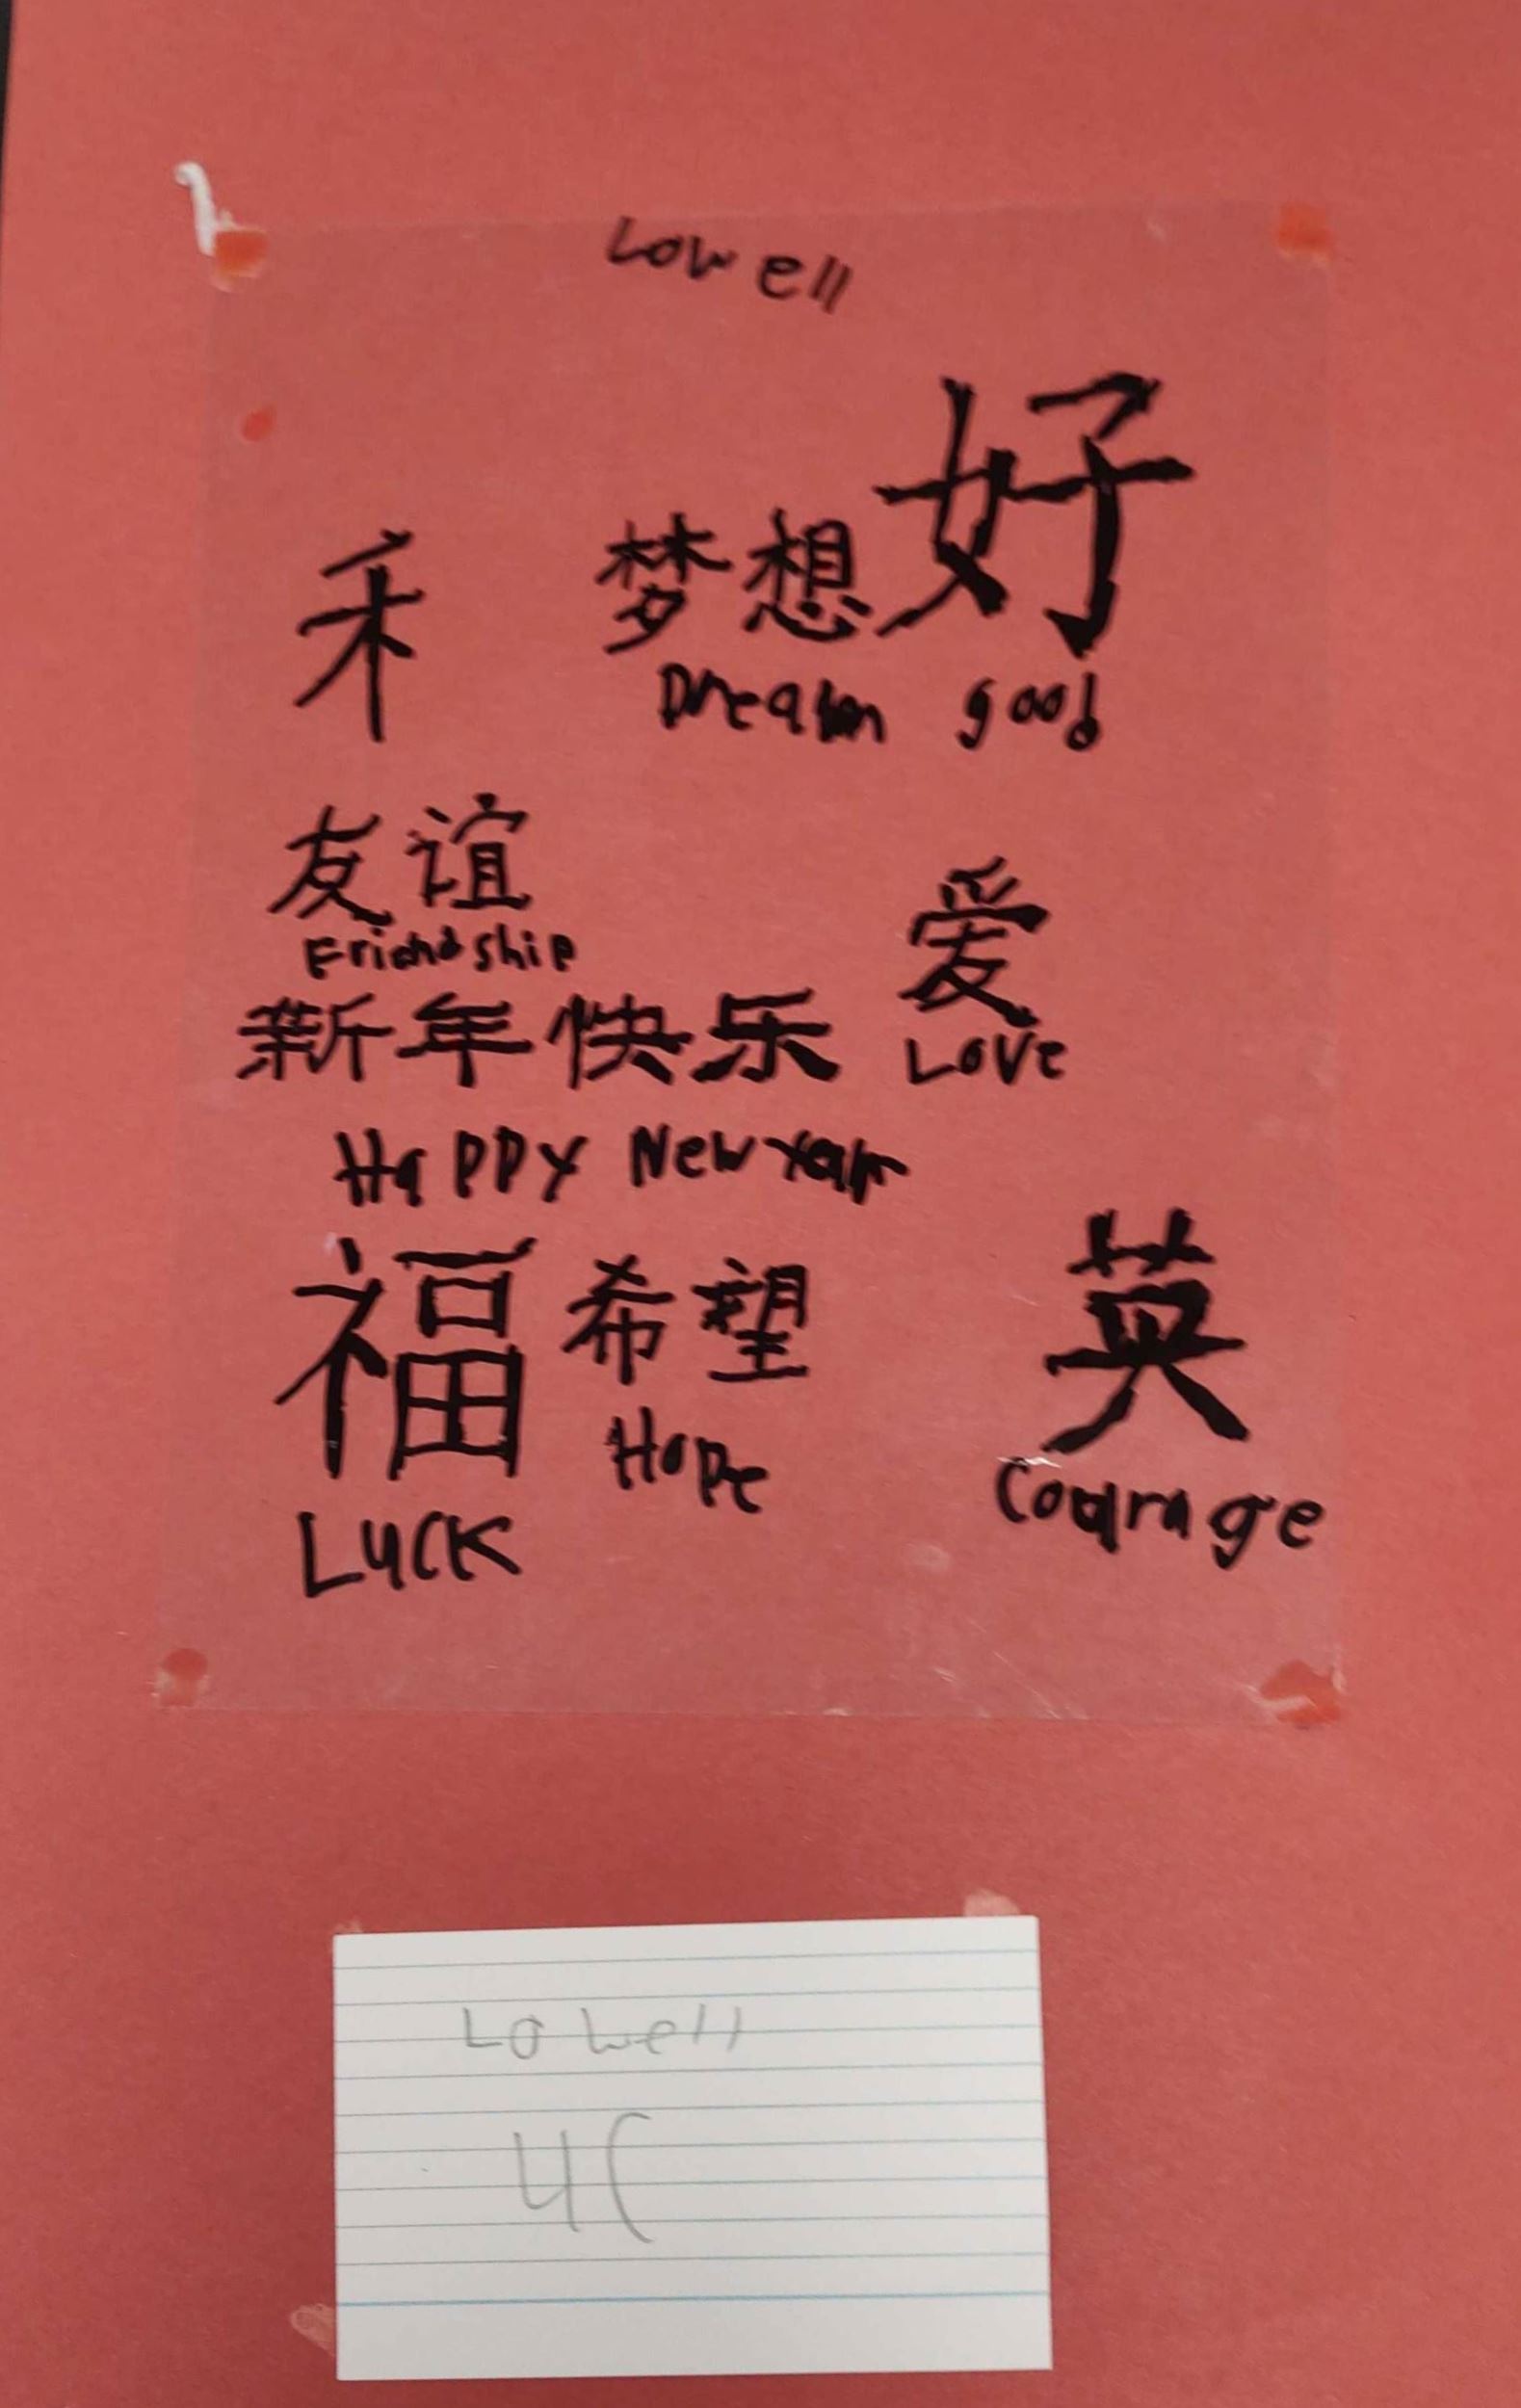 Lowell
好
禾 梦想
Dream good
友谊
Friendship
爱
Love
新年快乐
Happy New Year
福 希望 英
Hope
Courage
Luck
Lowell
4C